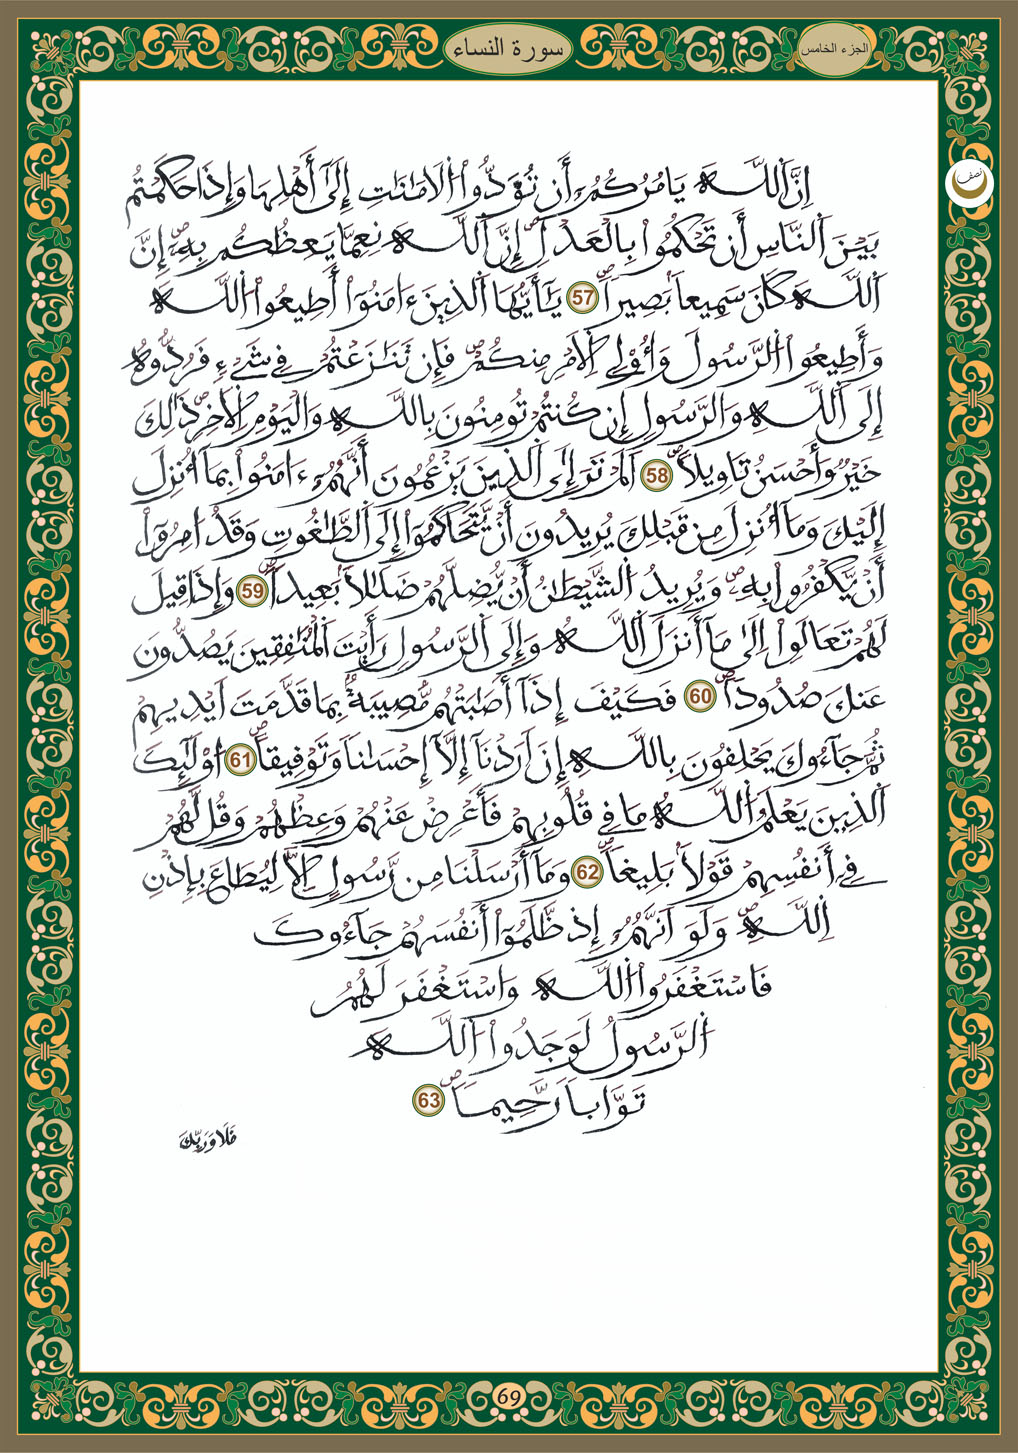 سورة النساء
الجزء الخامس
نصف
اِنَّ اَ۬للَّهَ يَامُرُكُمُۥٓ أَن تُؤَدُّواْ اُ۬لَامَٰنَٰتِ إِلَىٰٓ أَهْلِهَا وَإِذَا حَكَمْتُم
بَيْنَ اَ۬لنَّاسِ أَن تَحْكُمُواْ بِالْعَدْلِۖ إِنَّ اَ۬للَّهَ نِعِمَّا يَعِظُكُم بِهِۦٓۖ إِنَّ
اَ۬للَّهَ كَانَ سَمِيعاَۢ بَصِيراٗۖ 57 يَٰٓأَيُّهَا اَ۬لذِينَ ءَامَنُوٓاْ أَطِيعُواْ اُ۬للَّهَ
وَأَطِيعُواْ اُ۬لرَّسُولَ وَأُوْلِے اِ۬لَامْرِ مِنكُمْۖ فَإِن تَنَٰزَعْتُمْ فِے شَےْءٖ فَرُدُّوهُ
إِلَى اَ۬للَّهِ وَالرَّسُولِ إِن كُنتُمْ تُومِنُونَ بِاللَّهِ وَالْيَوْمِ اِ۬لَاخِرِۖ ذَٰلِكَ
خَيْرٞ وَأَحْسَنُ تَاوِيلاًۖ 58 اَلَمْ تَرَ إِلَى اَ۬لذِينَ يَزْعُمُونَ أَنَّهُمُۥٓ ءَامَنُواْ بِمَآ أُنزِلَ
إِلَيْكَ وَمَآ أُنزِلَ مِن قَبْلِكَ يُرِيدُونَ أَنْ يَّتَحَاكَمُوٓاْ إِلَى اَ۬لطَّٰغُوتِ وَقَدُ ا۟مِرُوٓاْ
أَنْ يَّكْفُرُواْ بِهِۦۖ وَيُرِيدُ اُ۬لشَّيْطَٰنُ أَنْ يُّضِلَّهُمْ ضَلَٰلاَۢ بَعِيداٗۖ 59 وَإِذَا قِيلَ
لَهُمْ تَعَالَوِاْ اِلَىٰ مَآ أَنزَلَ اَ۬للَّهُ وَإِلَى اَ۬لرَّسُولِ رَأَيْتَ اَ۬لْمُنَٰفِقِينَ يَصُدُّونَ
عَنكَ صُدُوداٗۖ 60 فَكَيْفَ إِذَآ أَصَٰبَتْهُم مُّصِيبَةُۢ بِمَا قَدَّمَتَ اَيْدِيهِمْ
ثُمَّ جَآءُوكَ يَحْلِفُونَ بِاللَّهِ إِنَ اَرَدْنَآ إِلَّآ إِحْسَٰناٗ وَتَوْفِيقاًۖ 61 ا۟وْلَٰٓئِكَ
اَ۬لذِينَ يَعْلَمُ اُ۬للَّهُ مَا فِے قُلُوبِهِمْ فَأَعْرِضْ عَنْهُمْ وَعِظْهُمْ وَقُل لَّهُمْ
فِےٓ أَنفُسِهِمْ قَوْلاَۢ بَلِيغاٗۖ 62 وَمَآ أَرْسَلْنَا مِن رَّسُولٍ اِلَّا لِيُطَاعَ بِإِذْنِ
اِ۬للَّهِۖ وَلَوَ اَنَّهُمُۥٓ إِذ ظَّلَمُوٓاْ أَنفُسَهُمْ جَآءُوكَ
فَاسْتَغْفَرُواْ اُ۬للَّهَ وَاسْتَغْفَرَ لَهُمُ
اُ۬لرَّسُولُ لَوَجَدُواْ اُ۬للَّهَ
تَوَّاباٗ رَّحِيماٗۖ 63
فَلَا وَرَبِّكَ
69